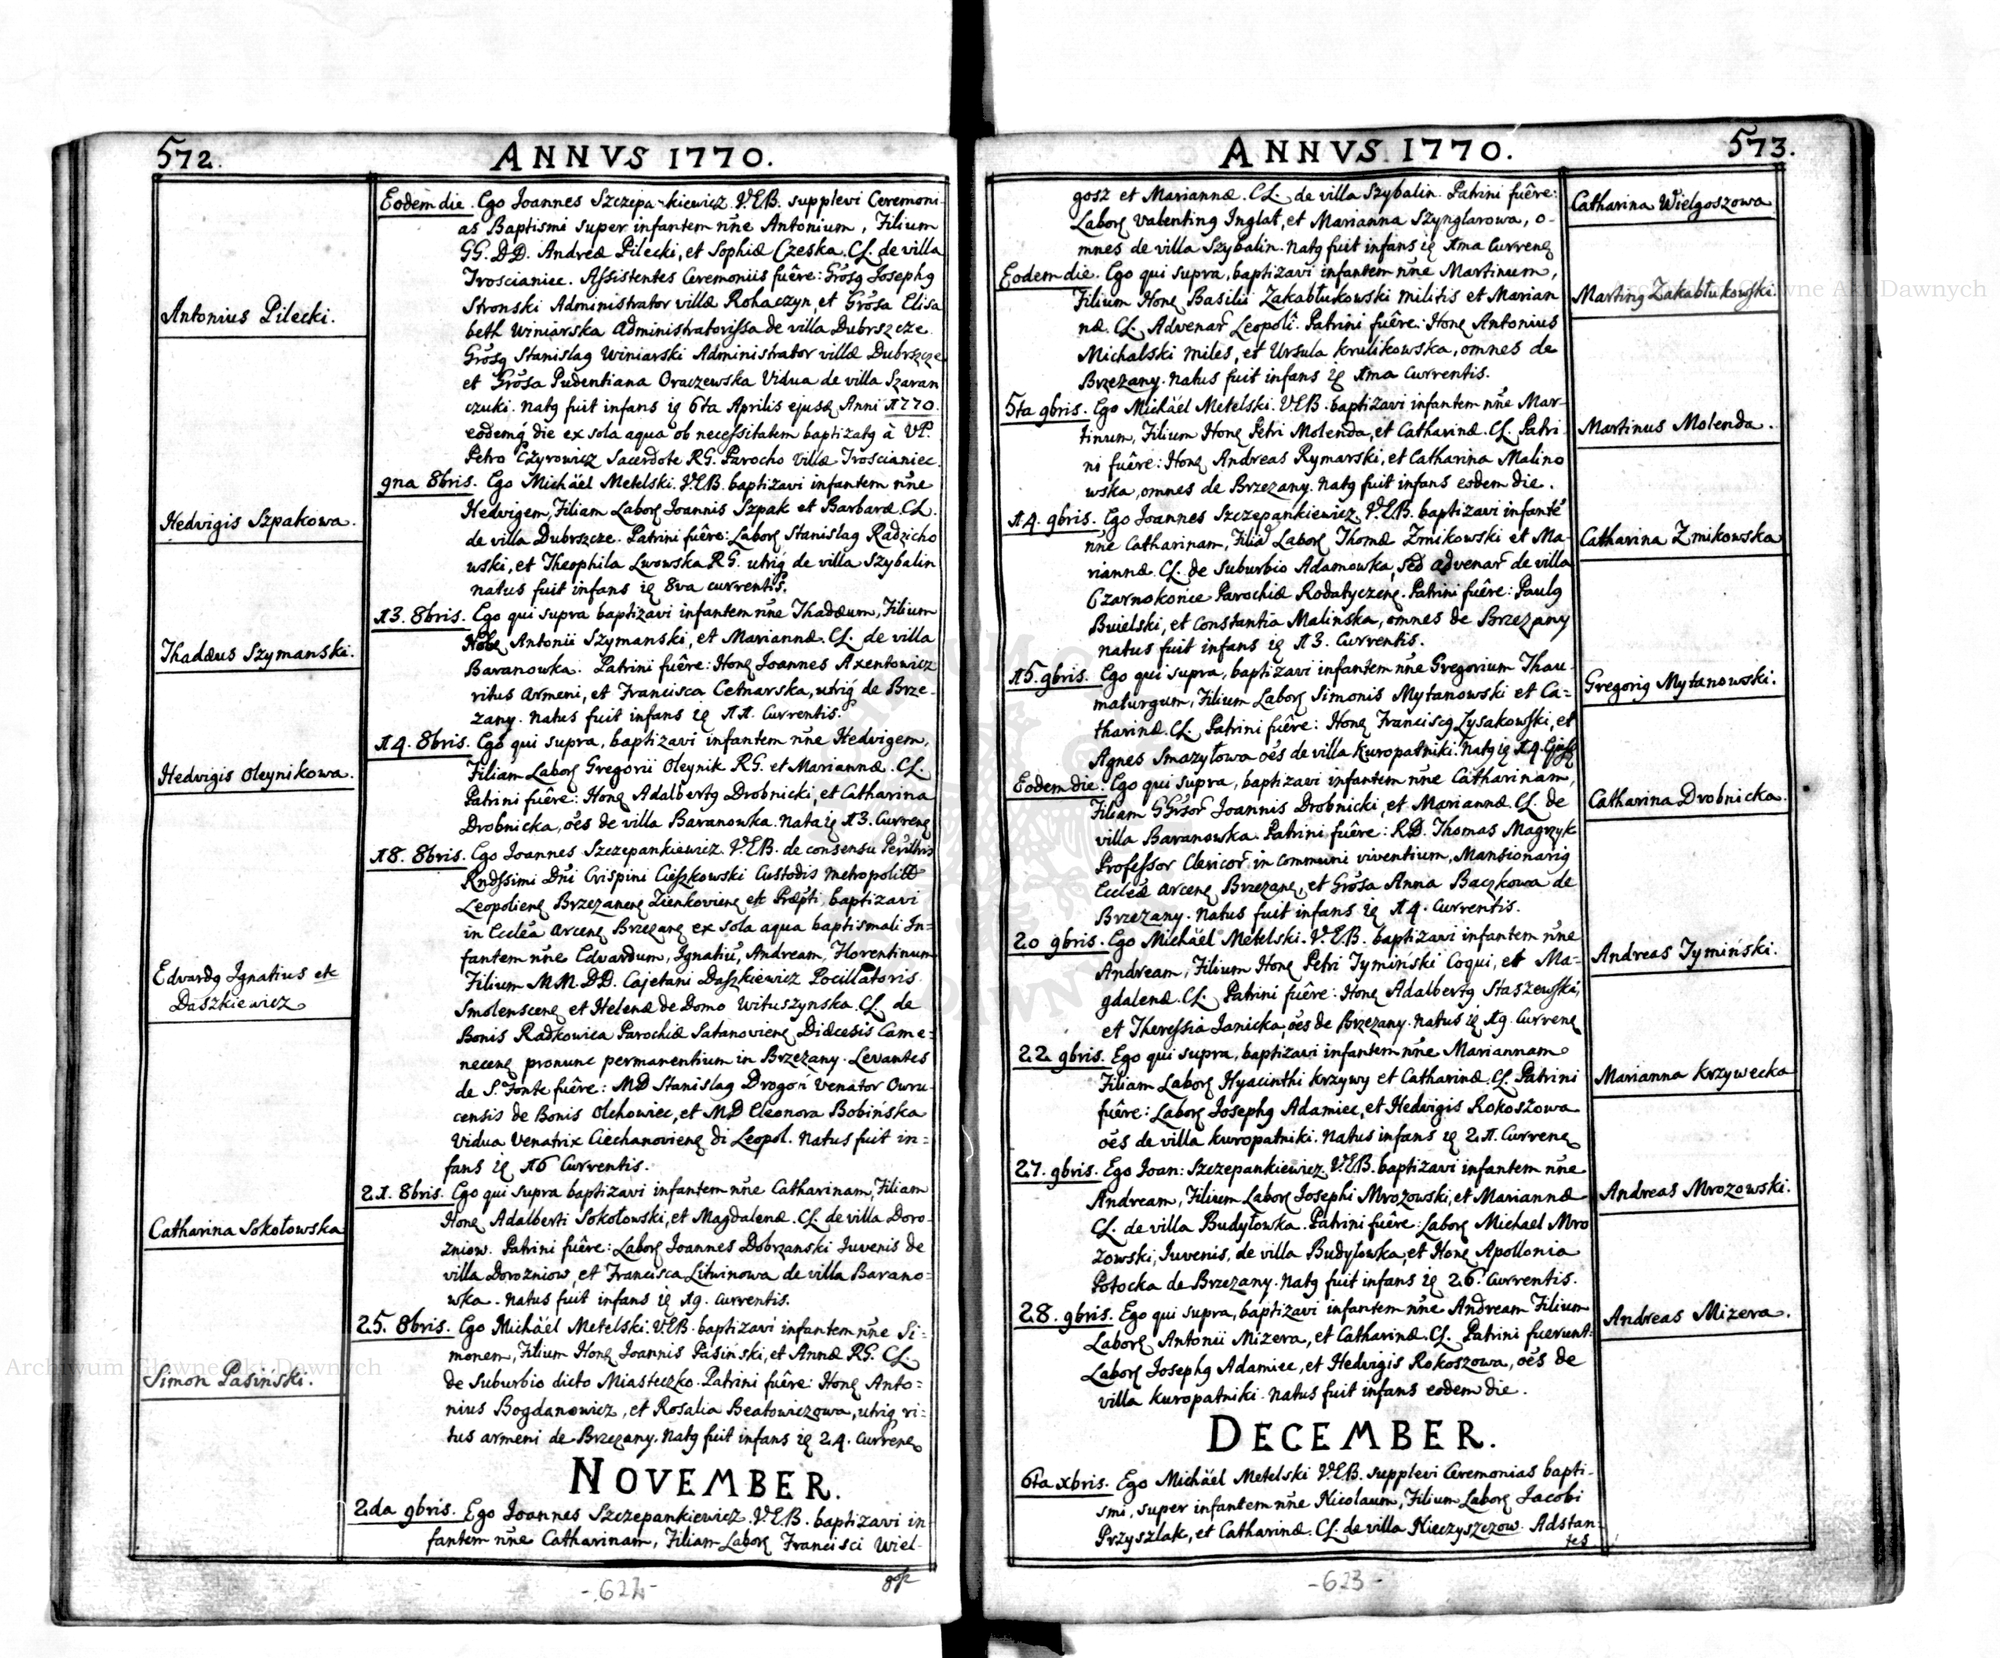 572.
ANNVS 1770.
Eodem die. Ego Joannes Szczepa-kiewicz. V.E.B. supplevi Ceremoni-
as Baptismi super infantem nñe Antonium, Filium
GG. DD. Andreæ Pilecki, et Sophiæ Czeska. CL. de villa
Troscianiec. Assistentes Ceremoniis fuêre: Grõsq Josephq
Stronski Administrator villæ Rohaczyn, et Grõsa Elisa
beth Winiarska Administratorissa de villa Dubrszcze.
Antonius Pilecki.
Grõsq Stanislaq Winiarski Administrator villæ Dubrszcze
et Grõsa Pudentiana Oraczewska Vidua de villa Szaran
czuki. Natq fuit infans ię 6ta Aprilis ejusę Anni 1770.
eodemq́ die ex sola aqua ob necessitatem baptizatq à VP.
Petro Czyrowicz Sacerdote RG. Parocho Villæ Troscianiec.
9na 8bris. Ego Michäel Metelski. V.E.B. baptizavi infantem nñe
Hedvigem, Filiam Laborę Joannis Szpak et Barbaræ CL.
Hedvigis Szpakowa.
de villa Dubrszcze. Patrini fuêre: Laborę Stanislaq Radzicho
wski, et Theophila Lwowska RG. utriq́ de villa Szybalin
natus fuit infans ię 8va currentis.
13. 8bris. Ego qui supra baptizavi infantem nñe Thadæum, Filium
Nobę Antonii Szymanski, et Mariannæ. CL. de villa
Thadæus Szymanski.
Baranowka. Patrini fuêre: Honę Joannes Axentowicz
ritus Armeni, et Francisca Cetnarska, utriq́ de Brze-
zany. Natus fuit infans ię 11. Currentis.
14. 8bris. Ego qui supra, baptizavi infantem nñe Hedvigem,
Filiam Laborę Gregorii Oleynik RG. et Mariannæ. CL.
Hedvigis Oleynikowa.
Patrini fuêre: Honę Adalbertq Drobnicki, et Catharina
Drobnicka, oẽs de villa Baranowka. Nata ię 13. Currenę
18. 8bris. Ego Joannes Szczepankiewicz. V.E.B. de consensu Perillris
Rndssimi Dñi Crispini Cieszkowski Custodis Metropolitæ
Leopolienę Brzezanenę Zienkovienę etc Præpti, baptizavi
in Ecclẽa Arcenę Brzezanę ex sola aqua baptismali In=
fantem nñe Edvardum, Ignatiũ, Andream, Florentinum
Edvardq Ignatius etc
Daszkiewicz
Filium MM. DD. Cajetani Daszkiewicz Pocillatoris
Smolenscenę et Helenæ de Domo Wituszynska. CL. de
Bonis Radkowica Parochiæ Satanovienę Diæcesis Came=
necenę pronunc permanentium in Brzezany. Levantes
de S. Fonte fuêre: MD Stanislaq Drogoń Venator Owru-
censis de Bonis Olchowiec, et MD Eleonora Bobińska
Vidua Venatrix Ciechanovienę di Leopol. Natus fuit in=
fans ię 16 Currentis.
21. 8bris. Ego qui supra baptizavi infantem nñe Catharinam, Filiam
Honę Adalberti Sokołowski, et Magdalenæ. CL. de villa Doro-
Catharina Sokołowska
zniow. Patrini fuêre: Laborę Joannes Dobrzanski Juvenis de
villa Dorozniow, et Francisca Litwinowa de villa Barano=
wka. Natus fuit infans ię 19. Currentis.
25. 8bris. Ego Michäel Metelski. V.E.B. baptizavi infantem nñe Si-
monem, Filium Honę Joannis Pasiński, et Annæ RG. CL.
Simon Pasiński.
de Suburbio dicto Miasteczko. Patrini fuêre: Honę Anto=
nius Bogdanowicz, et Rosalia Beatowiczowa, utriq ri-
tus Armeni de Brzezany. Natq fuit infans ię 24. Currenę
NOVEMBER.
2da 9bris. Ego Joannes Szczepankiewicz. V.E.B. baptizavi in
fantem nñe Catharinam, Filiam Laborę Francisci Wiel-
gosz
- 622 -
ANNVS 1770.
573.
gosz et Mariannæ. CL. de villa Szybalin. Patrini fuêre:
Catharina Wielgoszowa
Laborę Valentinq Inglat, et Marianna Szynglarowa, o-
mnes de villa Szybalin. Natq fuit infans ię 1ma Currenę
Eodem die. Ego qui supra, baptizavi infantem nñe Martinum,
Filium Honę Basilii Zakabłukowski Militis et Marian
Martinq Zakabłukowski.
næ. CL. Advenar̃ Leopolî. Patrini fuêre: Honę Antonius
Michalski Miles, et Ursula Krulikowska, omnes de
Brzezany. Natus fuit infans ię 1ma Currentis.
5ta 9bris. Ego Michäel Metelski. V.E.B. baptizavi infantem nñe Mar-
tinum, Filium Honę Petri Molenda, et Catharinæ. CL. Patri-
Martinus Molenda.
ni fuêre: Honę Andreas Rymarski, et Catharina Malino
wska, omnes de Brzezany. Natq fuit infans eodem die.
14. 9bris. Ego Joannes Szczepankiewicz V.E.B. baptizavi infantẽ
nñe Catharinam, Filiã Laborę Thomæ Zmikowski et Ma-
Catharina Zmikowska
riannæ. CL. de Suburbio Adamowka, sed advenar̃ de villa
Czarnokonce Parochiæ Rodatyczenę. Patrini fuêre: Paulq
Buielski, et Constantia Malinska, omnes de Brzezany
natus fuit infans ię 13. Currentis.
15. 9bris. Ego qui supra, baptizavi infantem nñe Gregorium Thau-
maturgum, Filium Laborę Simonis Mytanowski et Ca=
Gregoriq Mytanowski.
tharinæ. CL. Patrini fuêre: Honę Franciscq Lysakowski, et
Agnes Smazyłowa oẽs de villa Kuropatniki. Natq ię 14. Ejusę
Eodem die. Ego qui supra, baptizavi infantem nñe Catharinam,
Filiam GGrsor̃ Joannis Drobnicki, et Mariannæ. CL. de
Catharina Drobnicka.
villa Baranowka. Patrini fuêre: R.D. Thomas Magrzyk
Professor Clericor̃ in Communi viventium, Mansionariq
Eccleæ Arcenę Brzezanę, et Grõsa Anna Baczkowa de
Brzezany. Natus fuit infans ię 14. Currentis.
20 9bris. Ego Michäel Metelski. V.E.B. baptizavi infantem nñe
Andream, Filium Honę Petri Tymiński Coqui, et Ma-
Andreas Tymiński.
gdalenæ. CL. Patrini fuêre: Honę Adalbertq Staszewski,
et Theressia Janicka, oẽs de Brzezany. Natus ię 19. Currenę
22 9bris. Ego qui supra, baptizavi infantem nñe Mariannam
Filiam Laborę Hyacinthi Krzywy et Catharinæ. CL. Patrini
Marianna Krzywecka
fuêre: Laborę Josephq Adamiec, et Hedvigis Rokoszowa
oẽs de villa Kuropatniki. Natus infans ię 21. Currenę
27. 9bris. Ego Joan: Szczepankiewicz V.E.B. baptizavi infantem nñe
Andream, Filium Laborę Josephi Mrozowski, et Mariannæ
Andreas Mrozowski.
CL. de villa Budyłowka. Patrini fuêre: Laborę Michael Mro
zowski, Juvenis, de villa Budyłowka, et Honę Apollonia
Potocka de Brzezany. Natq fuit infans ię 26. Currentis.
28. 9bris. Ego qui supra, baptizavi infantem nñe Andream Filium
Laborę Antonii Mizera, et Catharinæ. CL. Patrini fuerunt
Andreas Mizera.
Laborę Josephq Adamiec, et Hedvigis Rokoszowa, oẽs de
villa Kuropatniki. Natus fuit infans eodem die.
DECEMBER.
6ta xbris. Ego Michäel Metelski V.E.B. supplevi Ceremonias bapti-
smi, super infantem nñe Nicolaum, Filium Laborę Jacobi
Przyszlak, et Catharinæ. CL. de villa Kieczyszczow. Adstan-
tes
- 623 -
Archiwum Główne Akt Dawnych
Archiwum Główne Akt Dawnych